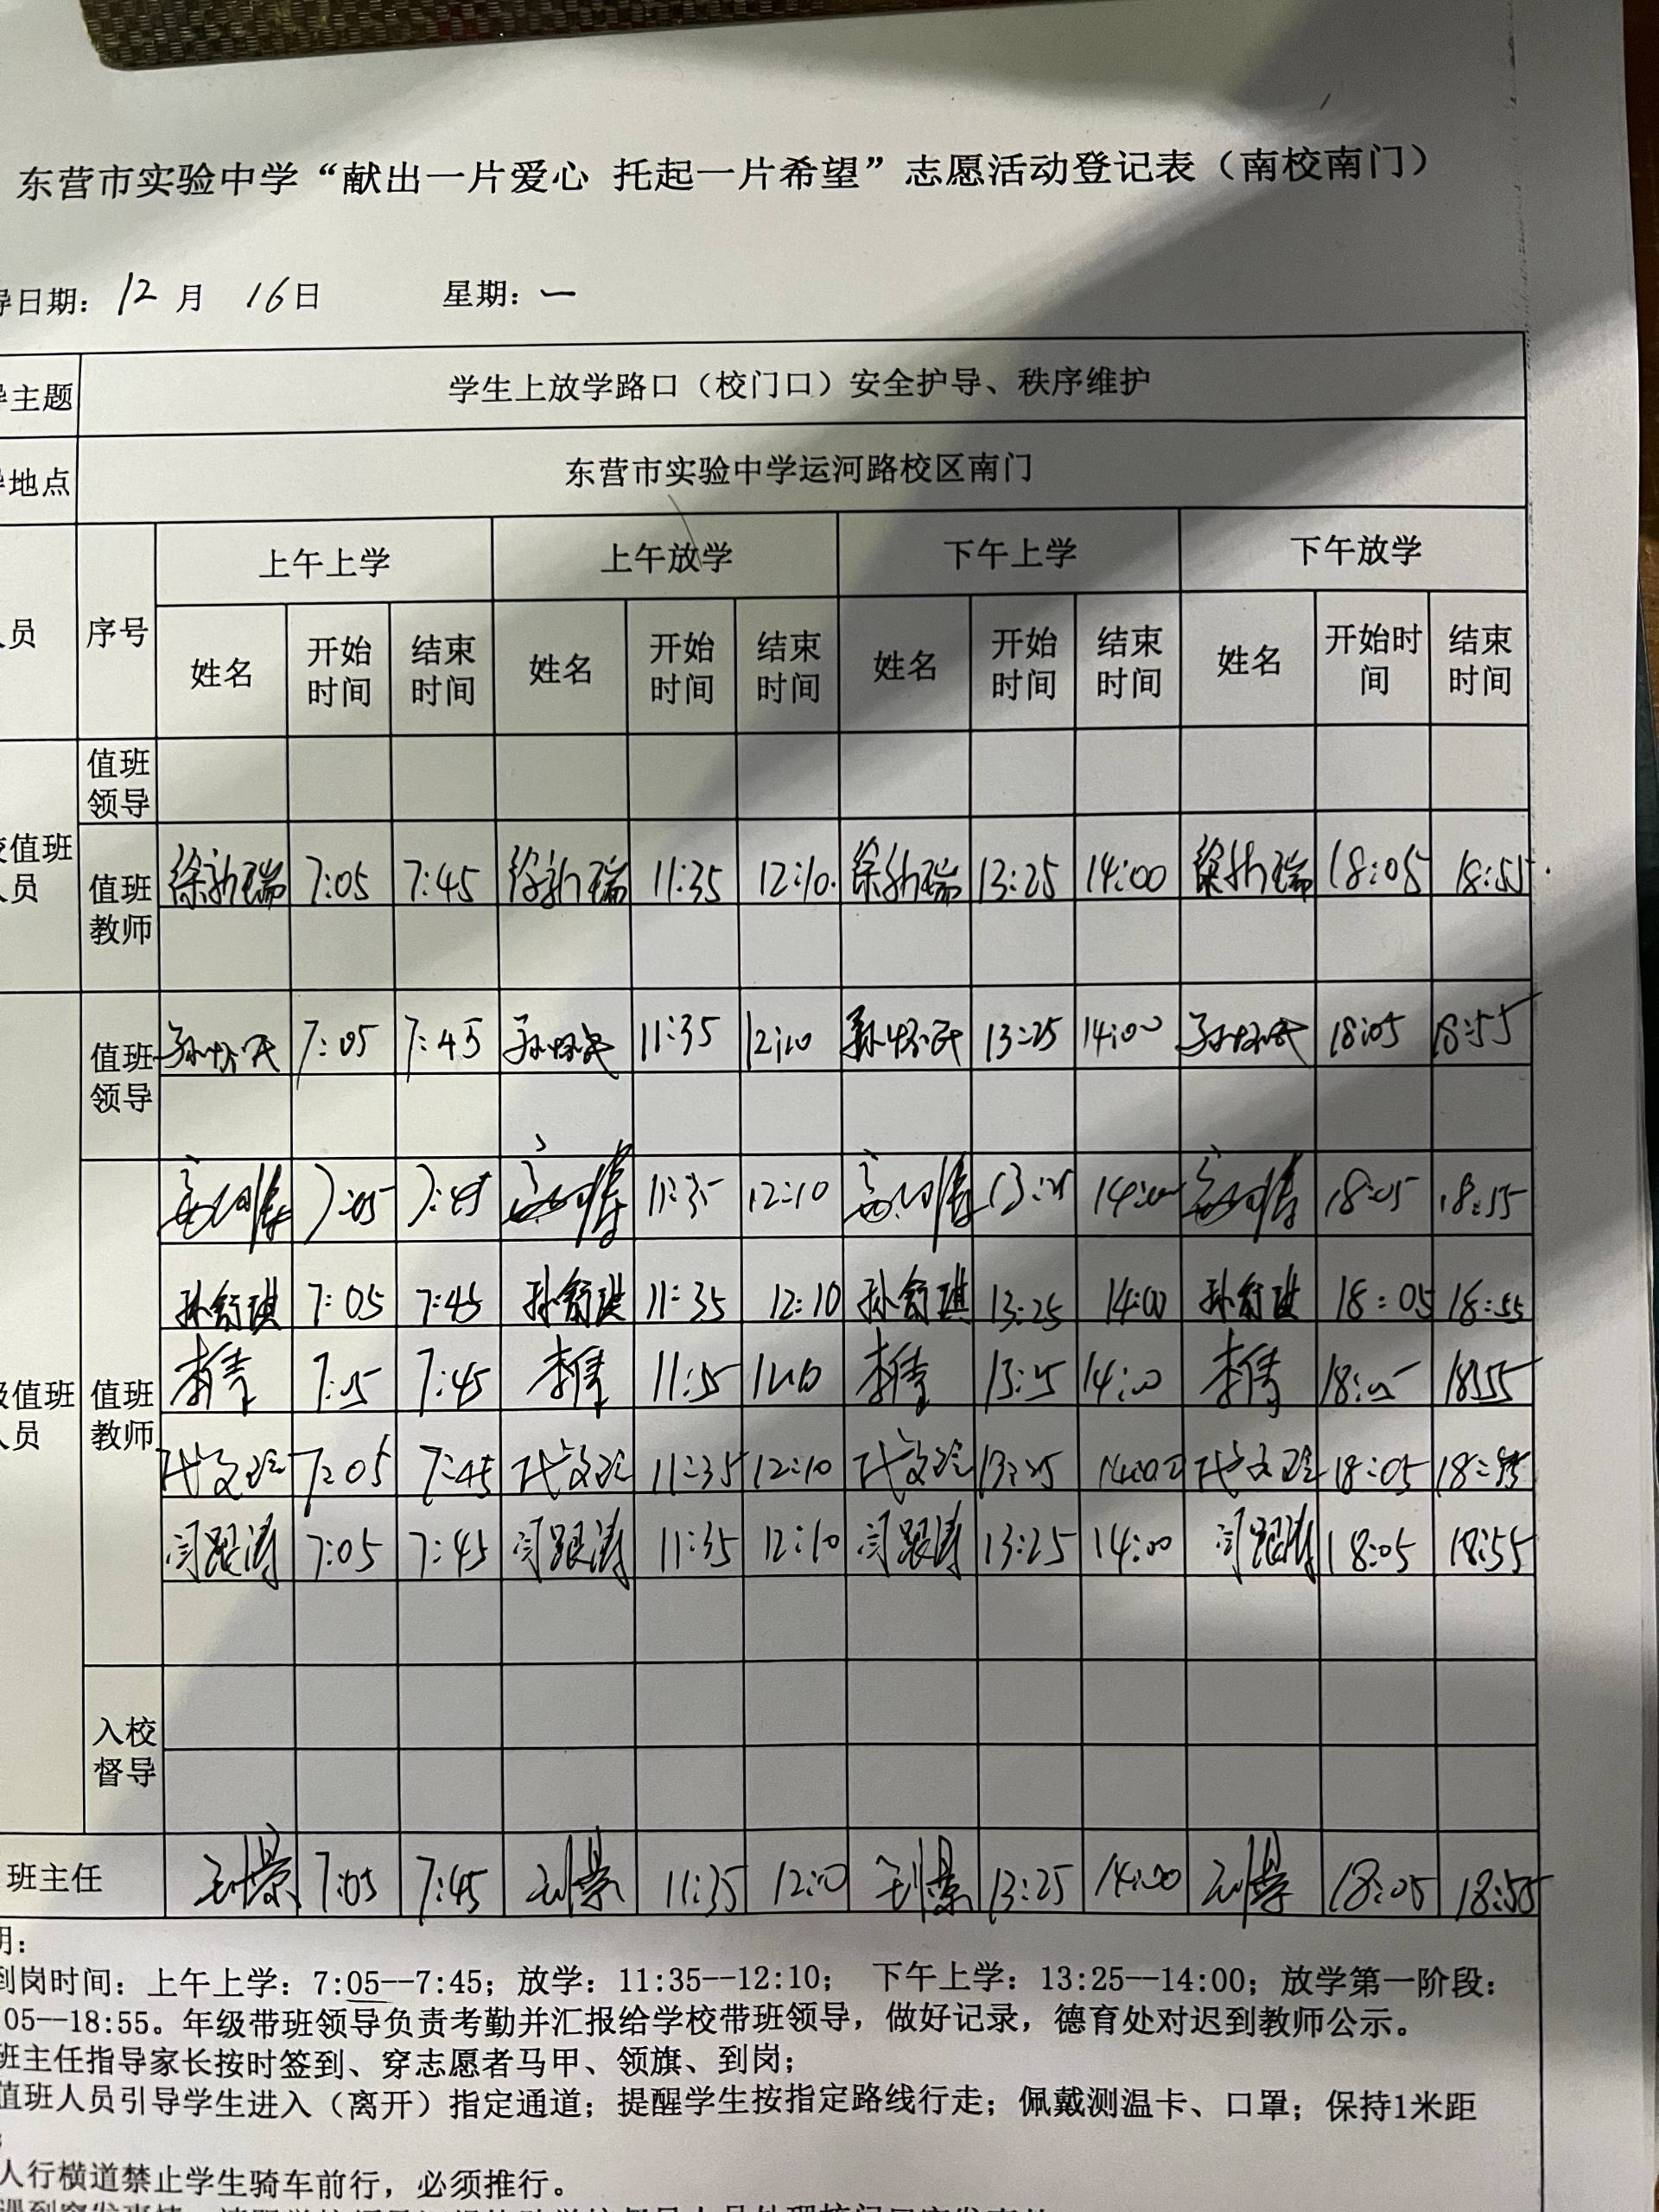 东营市实验中学“献出一片爱心 托起一片希望”志愿活动登记表（南校南门）
导日期：12月 16日 星期：一
导主题 学生上放学路口（校门口）安全护导、秩序维护
导地点 东营市实验中学运河路校区南门
人员 序号 上午上学 上午放学 下午上学 下午放学
姓名 开始时间 结束时间 姓名 开始时间 结束时间 姓名 开始时间 结束时间 姓名 开始时间 结束时间
值班领导
校值班人员 值班教师 徐新瑞 7:05 7:45 徐新瑞 11:35 12:10. 徐新瑞 13:25 14:00 徐新瑞 18:05 18:55.
值班领导 7:05 7:45 11:35 12:10 13:25 14:00 18:05 18:55
7:05 7:45 11:35 12:10 13:25 14:00 18:05 18:55
孙舒琪 7:05 7:45 孙舒琪 11:35 12:10 孙舒琪 13:25 14:00 孙舒琪 18:05 18:55
级值班人员 值班教师 李倩 7:05 7:45 李倩 11:35 12:10 李倩 13:25 14:00 李倩 18:05 18:55
代文 7:05 7:45 代文 11:35 12:10 代文 13:25 14:00 代文 18:05 18:55
闫跟涛 7:05 7:45 闫跟涛 11:35 12:10 闫跟涛 13:25 14:00 闫跟涛 18:05 18:55
入校督导
班主任 7:05 7:45 11:35 12:10 13:25 14:00 18:05 18:55
明：
到岗时间：上午上学：7:05--7:45；放学：11:35--12:10； 下午上学：13:25--14:00；放学第一阶段：
05--18:55。年级带班领导负责考勤并汇报给学校带班领导，做好记录，德育处对迟到教师公示。
班主任指导家长按时签到、穿志愿者马甲、领旗、到岗；
值班人员引导学生进入（离开）指定通道；提醒学生按指定路线行走；佩戴测温卡、口罩；保持1米距
人行横道禁止学生骑车前行，必须推行。